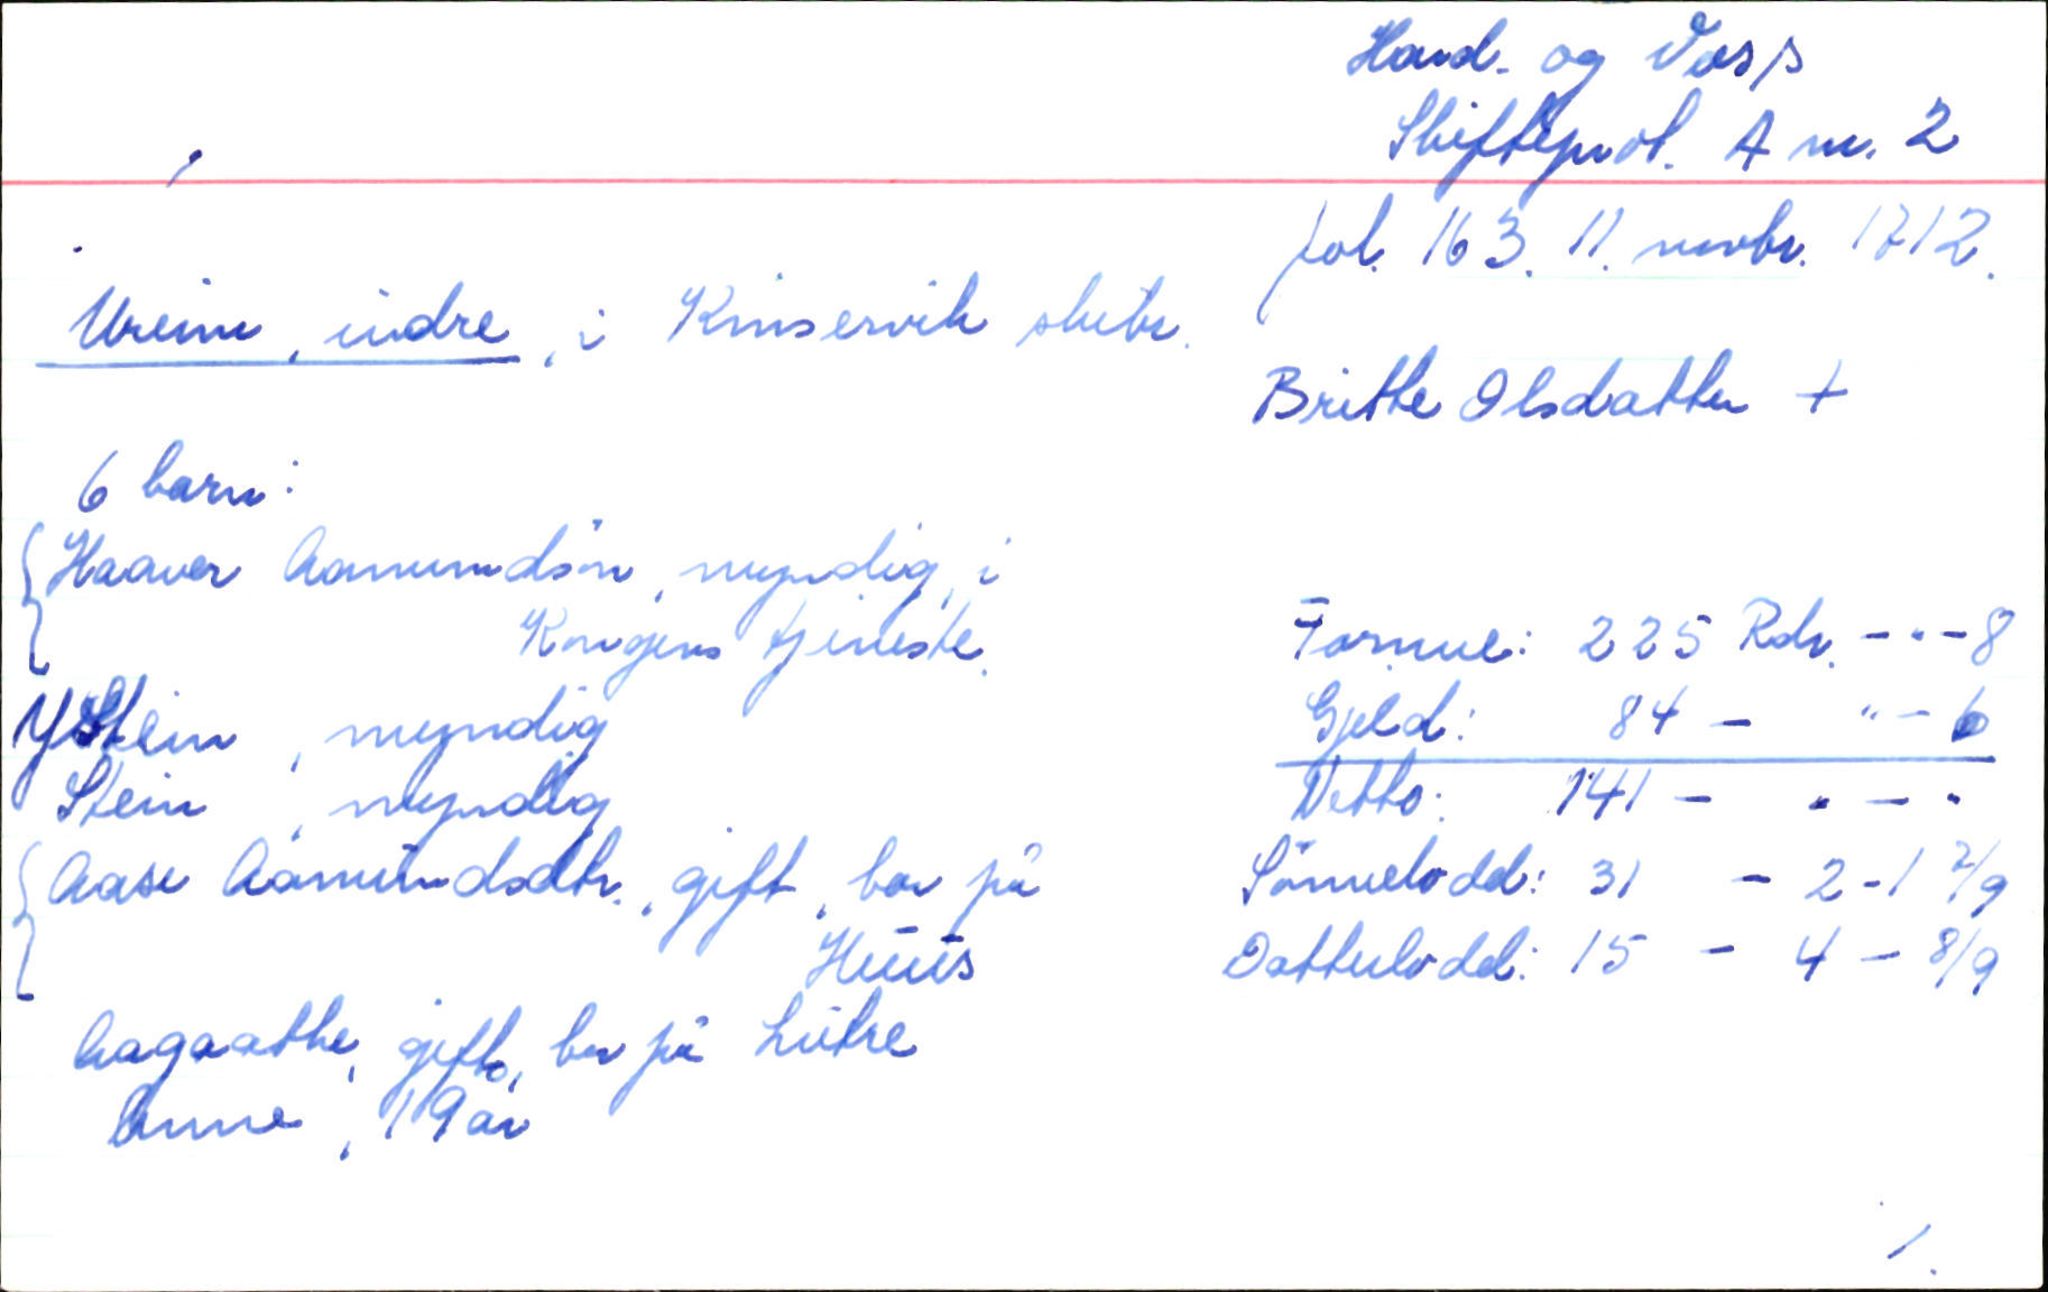 Hard. og Voss
Skifteprot. A nr. 2
fol. 163. 11. novbr. 1712.
Ureim, indre, i Kinservik skibr.
Britte Olsdatter +
6 barn:
Haaver Aamundsøn, myndig, i
Kongens tjeneste.
Ystein, myndig
Stein, myndig
Aase Aamundsdtr., gift, bor på
Huus
Aagaathe, gift, bor på Lutre
Anne, 19 år
Formue: 225 Rdr. - " - 8
Gjeld: 84 - " - 6
Netto: 141 - " - "
Sönnelodd: 31 - 2 - 1 2/9
Datterlodd: 15 - 4 - 8/9